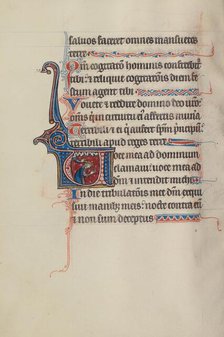 saluos faceret omnes mansuetos
terre
Qm cogitatio hominis confitebitur
tibi: et reliquie cogitationis diem fe
stum agent tibi
Vouete et reddite domino deo uro
omnes
Terribili et ei qui aufert spm principu
terribili apud reges terre
Voce mea ad dominum
clamaui: uoce mea
ad et intendit michi
In die tribulatiois mee dm exqui
siui manib; meis: nocte contra eu
et non sum deceptus